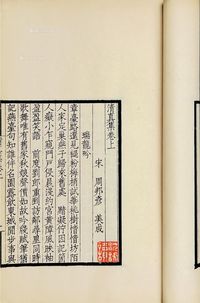 清真集卷上
宋 周邦彥 美成
瑞龍吟
章臺路還見褪粉梅梢試華桃樹愔愔坊陌
人家定巢燕子歸來舊處 黯凝佇因記箇
人癡小乍窺門戶侵晨淺約宮黃障風映袖
盈盈笑語 前度劉郎重到訪鄰尋里同時
歌舞唯有舊家秋娘聲價如故吟牋賦筆猶
記燕臺句知誰伴名園露飲東城閒步事與